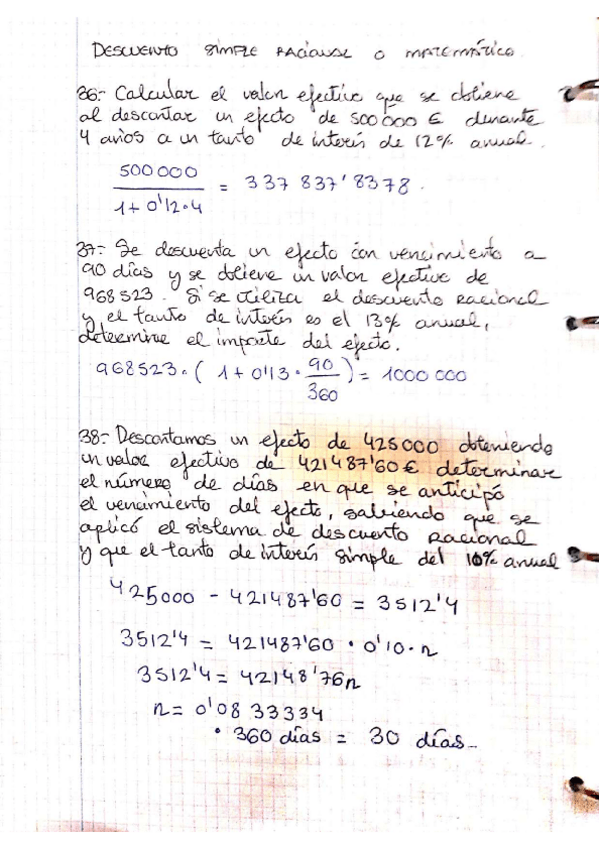 DESCUENTO SIMPLE RACIONAL O MATEMÁTICO
36.- Calcular el valor efectivo que se obtiene
al descontar un efecto de 500 000 € durante
4 años a un tanto de interés de 12% anual.
500 000
1 + 0'12 · 4
= 337 837'8378.
37.- Se descuenta un efecto con vencimiento a
90 días y se obtiene un valor efectivo de
968 523. Si se utiliza el descuento racional
y el tanto de interés es el 13% anual,
determine el importe del efecto.
968523 · ( 1 + 0'13 · 90/360 ) = 1000 000
38.- Descontamos un efecto de 425 000 obteniendo
un valor efectivo de 421 487'60 € determinar
el número de días en que se anticipó
el vencimiento del efecto, sabiendo que se
aplicó el sistema de descuento racional
y que el tanto de interés simple del 10% anual
425000 - 421487'60 = 3512'4
3512'4 = 421487'60 · 0'10 · n
3512'4 = 42148'76n
n = 0'08 33334
· 360 días = 30 días